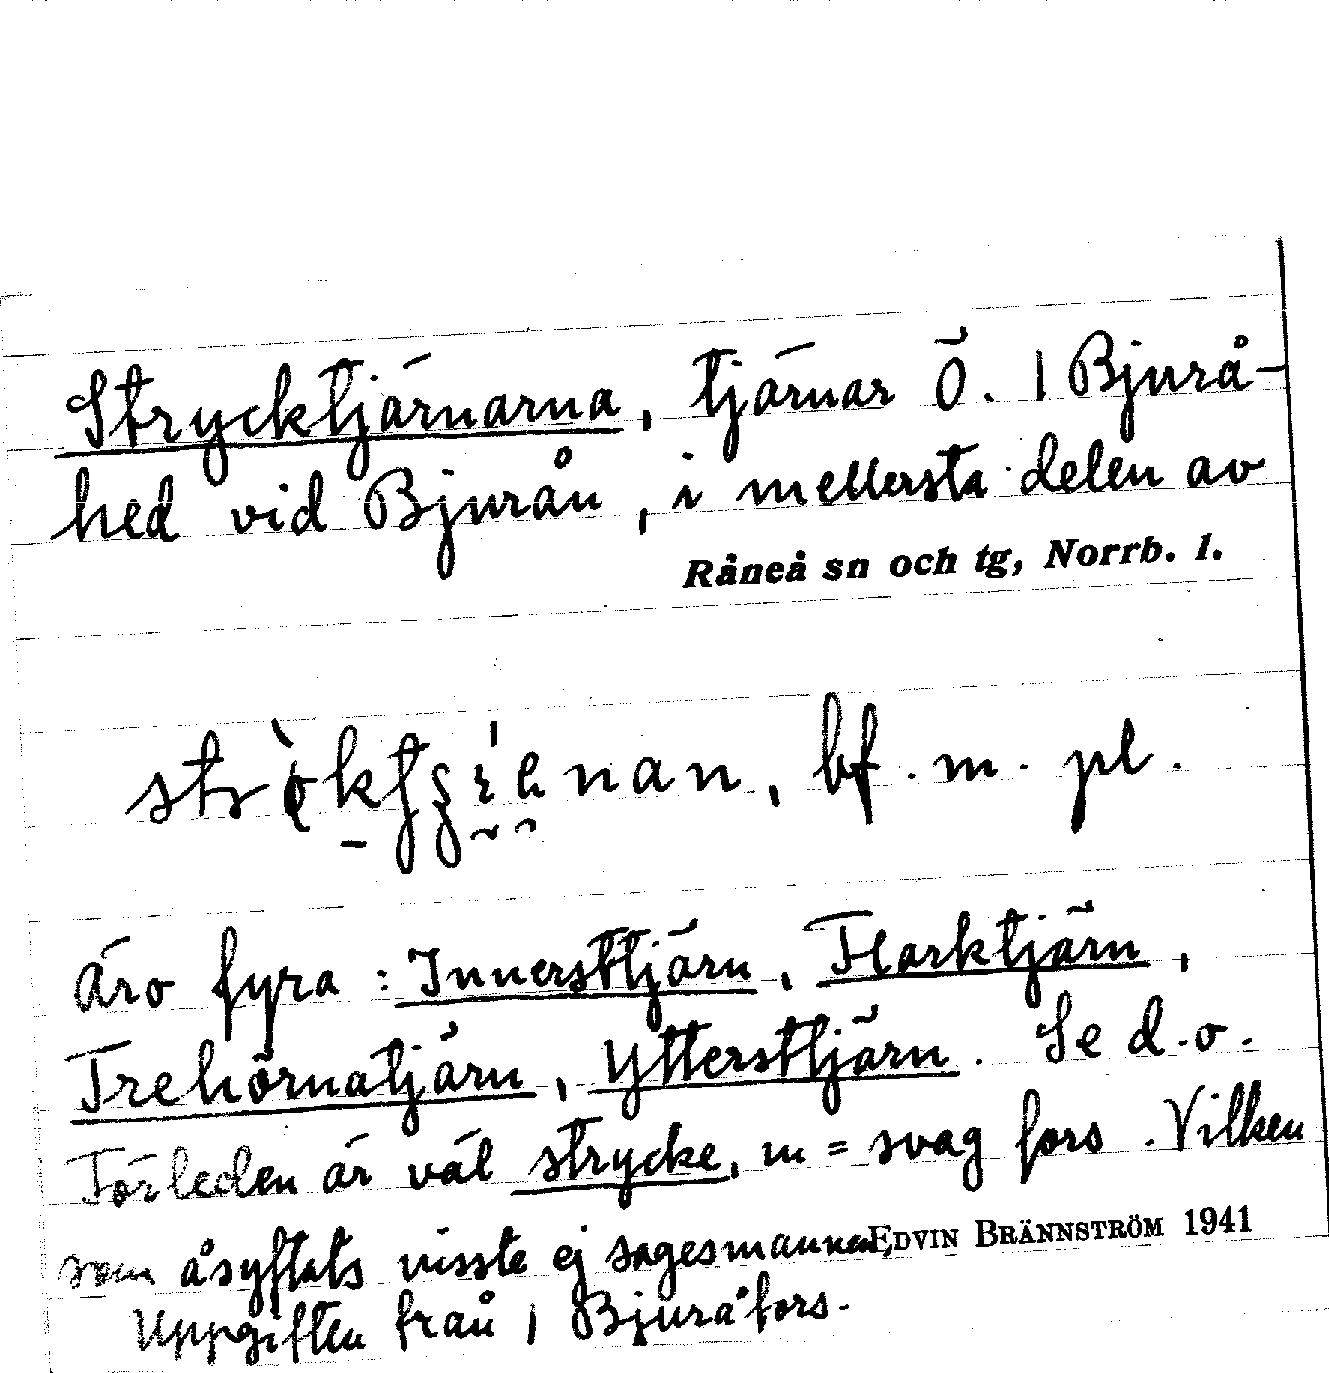 Strycktjärnarna, tjärnar Ö. | Bjurå-
hed vid Bjurån, i mellersta delen av
Råneå sn och tg, Norrb. l.
bf. m. pl.
äro fyra: Innersttjärn, Flarktjärn,
Trehörnatjärn, Ytterstjärn. Se d.o.
Förleden är väl strycke, m = svag fors. Vilken
som åsyftats visste ej sagesmannen,
EDVIN BRÄNNSTRÖM 1941
Uppgiften från | Bjuråfors.